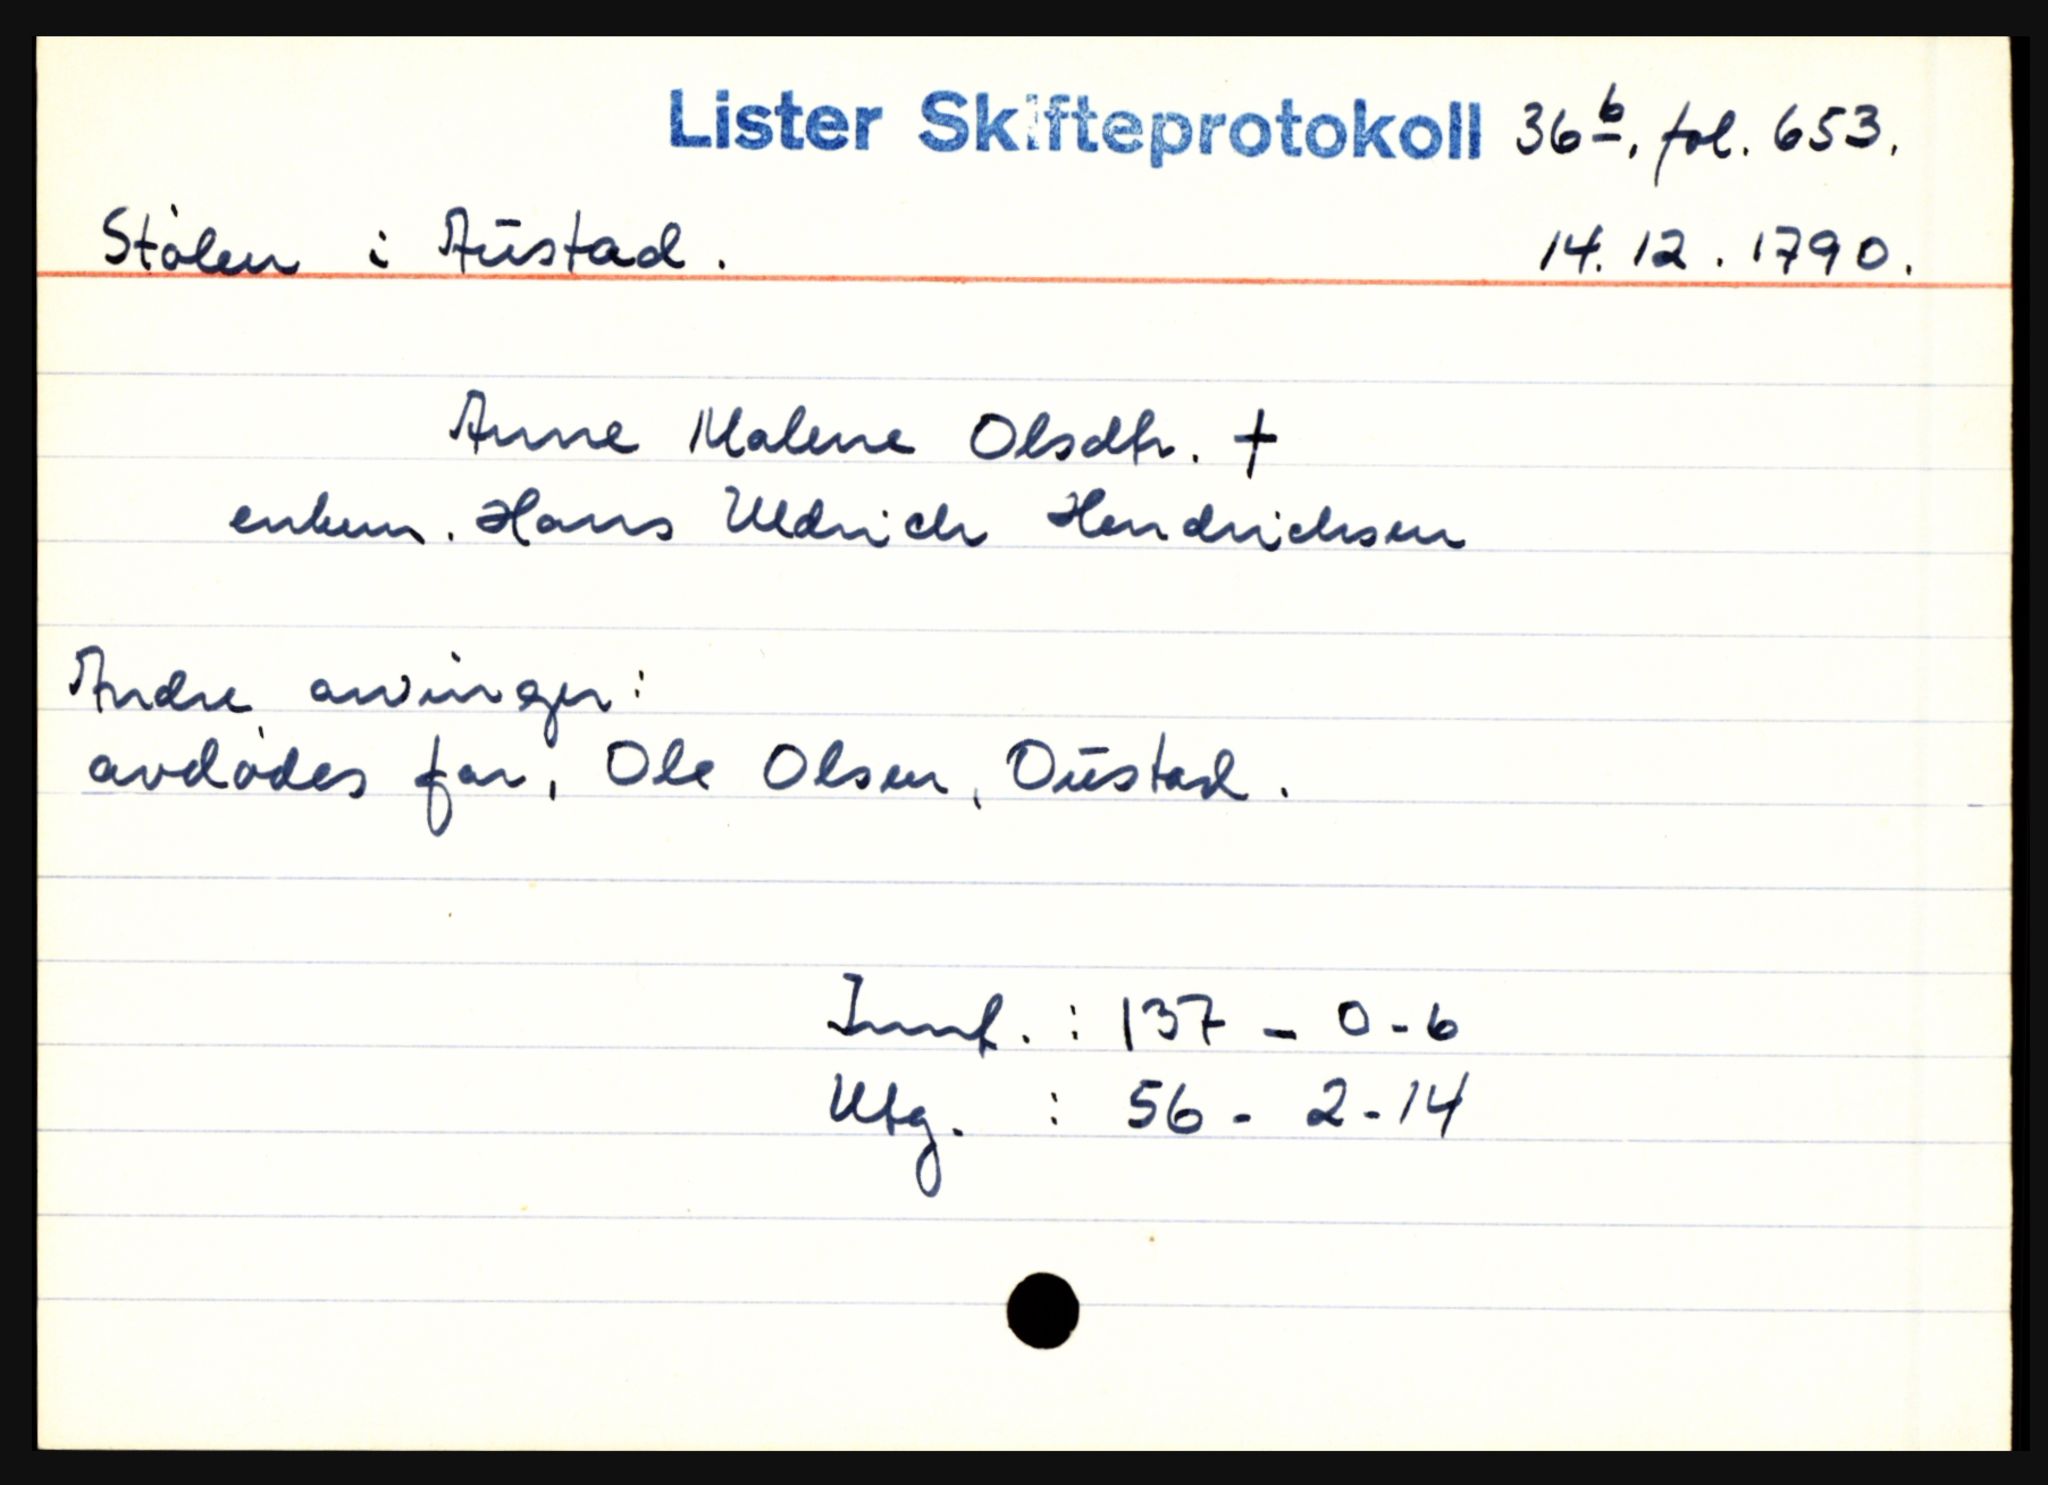 Lister Skifteprotokoll 36b, fol. 653.
Stølen i Austad. 14.12.1790.
Anne Malene Olsdtr. †
enkem. Hans Uldrich Hendrichsen
Andre arvinger:
avdødes far, Ole Olsen, Oustad.
Innt. : 137 - 0 - 6
Utg. : 56 - 2 - 14